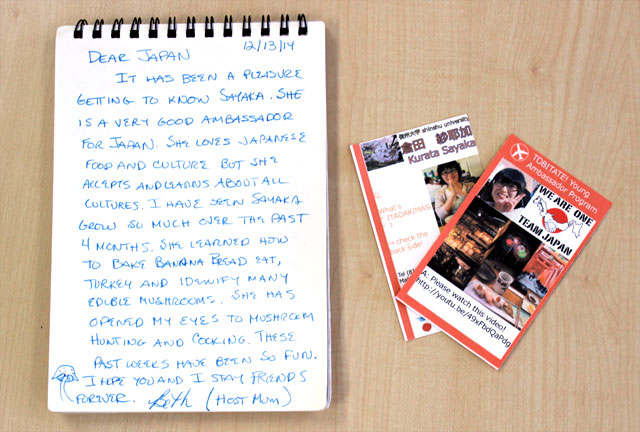 12/13/14
DEAR JAPAN
IT HAS BEEN A PLEASURE
GETTING TO KNOW SAYAKA. SHE
IS A VERY GOOD AMBASSADOR
FOR JAPAN. SHE LOVES JAPANESE
FOOD AND CULTURE BUT SHE
ACCEPTS AND LEARNS ABOUT ALL
CULTURES. I HAVE SEEN SAYAKA
GROW SO MUCH OVER THE PAST
4 MONTHS. SHE LEARNED HOW
TO BAKE BANANA BREAD EAT,
TURKEY AND IDENIFY MANY
EDIBLE MUSHROOMS. SHE HAS
OPENED MY EYES TO MUSHROOM
HUNTING AND COOKING. THESE
PAST WEEKS HAVE BEEN SO FUN.
I HOPE YOU AND I STAY FRIENDS
FOREVER. Beth (HOST MUM)
信州大学 shinshu university
倉田 紗耶加
Kurata Sayaka
What's
ITADAKIMAS
check the
back side!
Tel (81
TOBITATE! Young
Ambassador Program
WE ARE ONE
TEAM JAPAN
A: Please watch this video!
http://youtu.be/49xFbdQaPdg